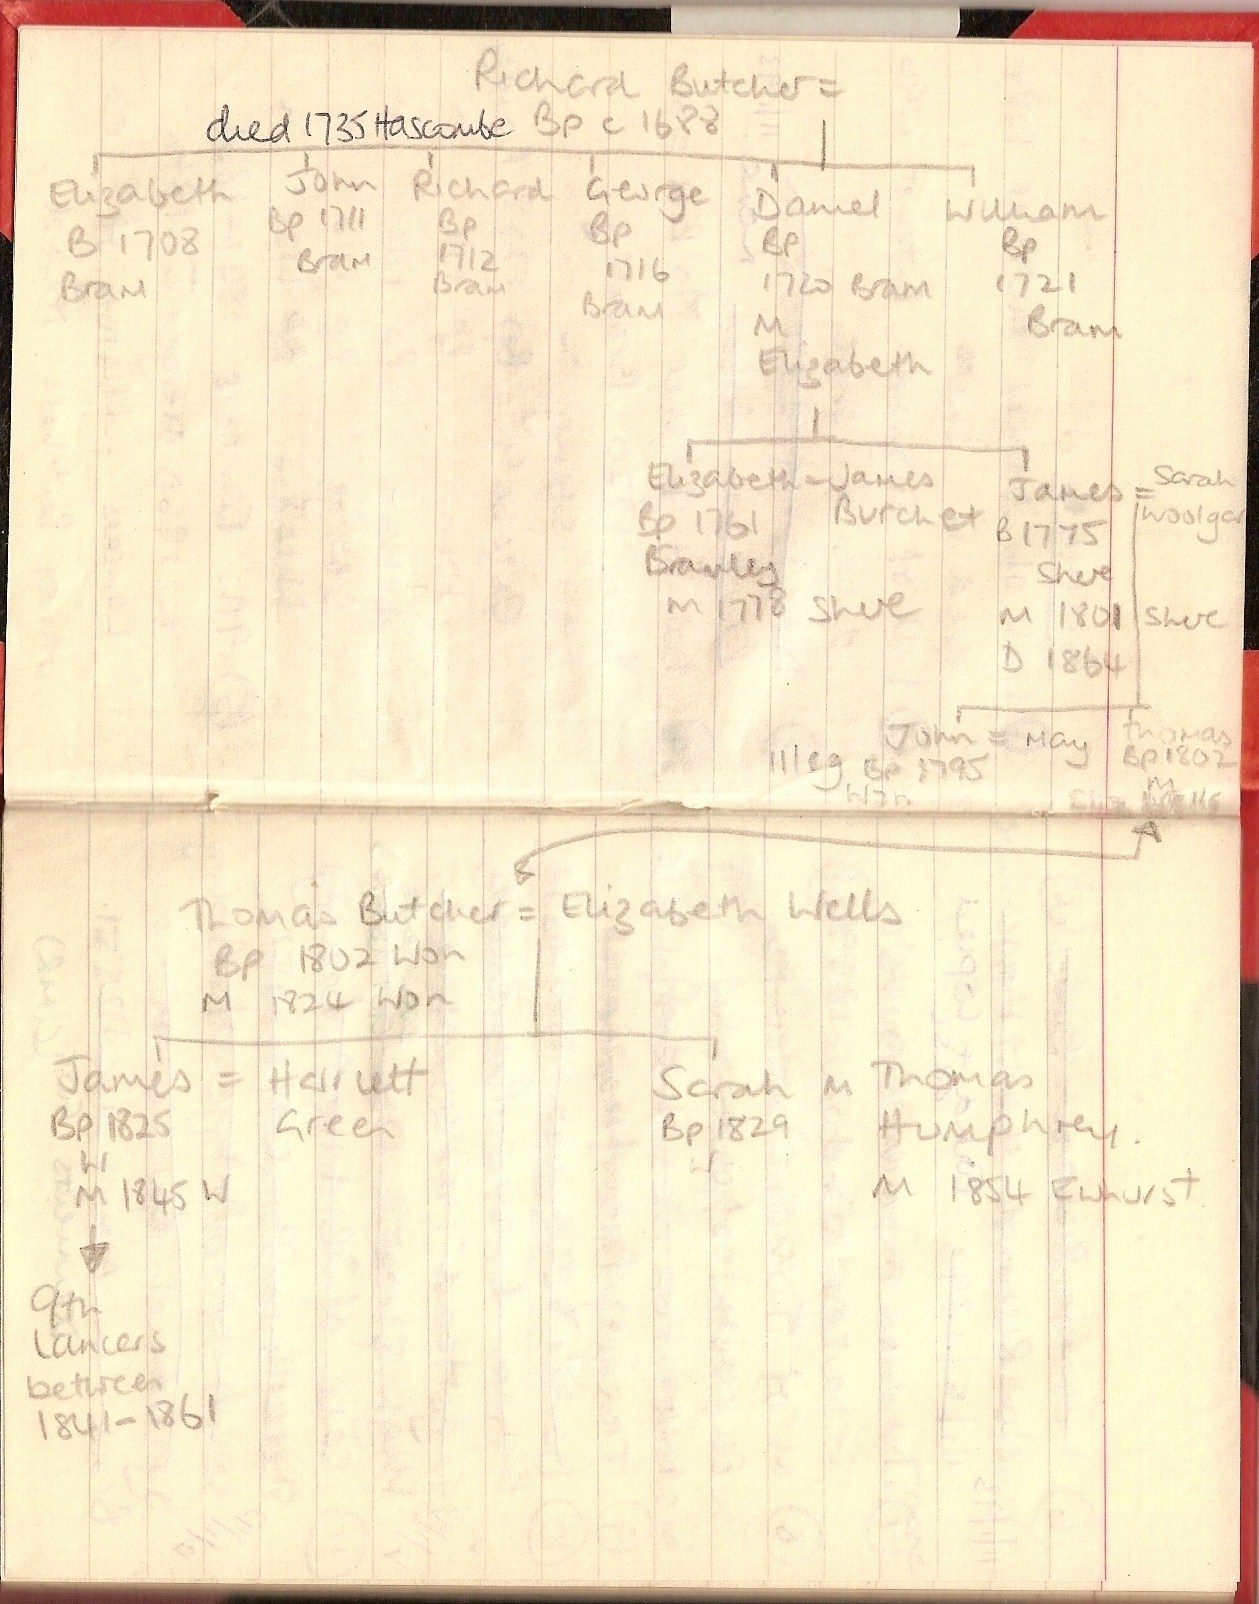 Richard Butcher =
died 1735 Hascombe Bp c 1688
Elizabeth
B 1708
Bram
John
Bp 1711
Bram
Richard
Bp
1712
Bram
George
Bp
1716
Bram
Daniel
Bp
1720 Bram
M
Elizabeth
William
Bp
1721
Bram
Elizabeth = James
Bp 1761 Burchet
Bramley
M 1778 Shere
James = Sarah
Woolgar
B 1775
Shere
M 1801 Shere
D 1864
John = May
Illeg Bp 1795
Won
Thomas
Bp 1802
M
Eliz Wells
Thomas Butcher = Elizabeth Wells
Bp 1802 Won
M 1824 Won
James = Harriett
Bp 1825 Green
W
M 1845 W
9th
Lancers
between
1841-1861
Sarah M Thomas
Bp 1829 Humphrey.
W
M 1854 Ewhurst